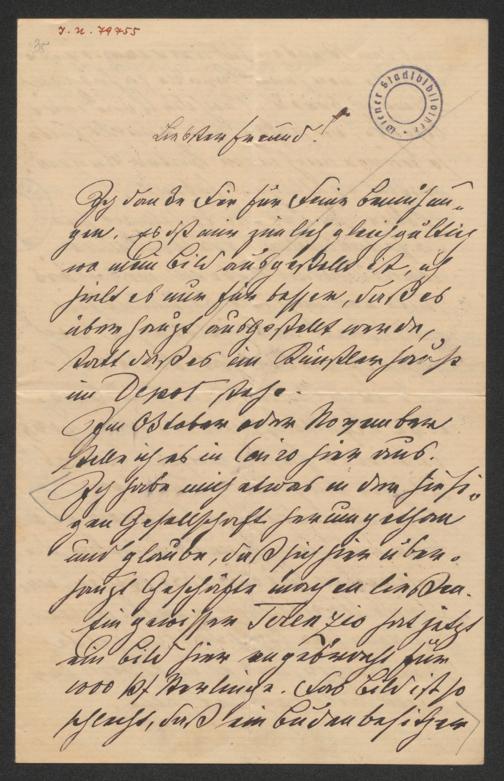 J. N. 79755
Wiener Stadtbibliothek
Liebster Freund!
Ich danke Dir für Deine Bemühun-
gen. Es ist mir ziemlich gleichgültig
wo mein Bild ausgestellt ist, ich
hielt es nur für besser, daß es
überhaupt ausgestellt werde,
statt daß es im Künstlerhause
im Depot stehe.
Im Oktober oder November
stelle ich es in Cairo hier aus.
Ich habe mich etwas in der hiesi-
gen Gesellschaft herumgethan
und glaube, daß sich hier über-
haupt Geschäfte machen ließen.
Ein gewisser Terenzio hat jetzt
ein Bild hier angebracht für
1000 Pf Sterlinge. Das Bild ist so
schlecht, daß ein Budenbesitzer